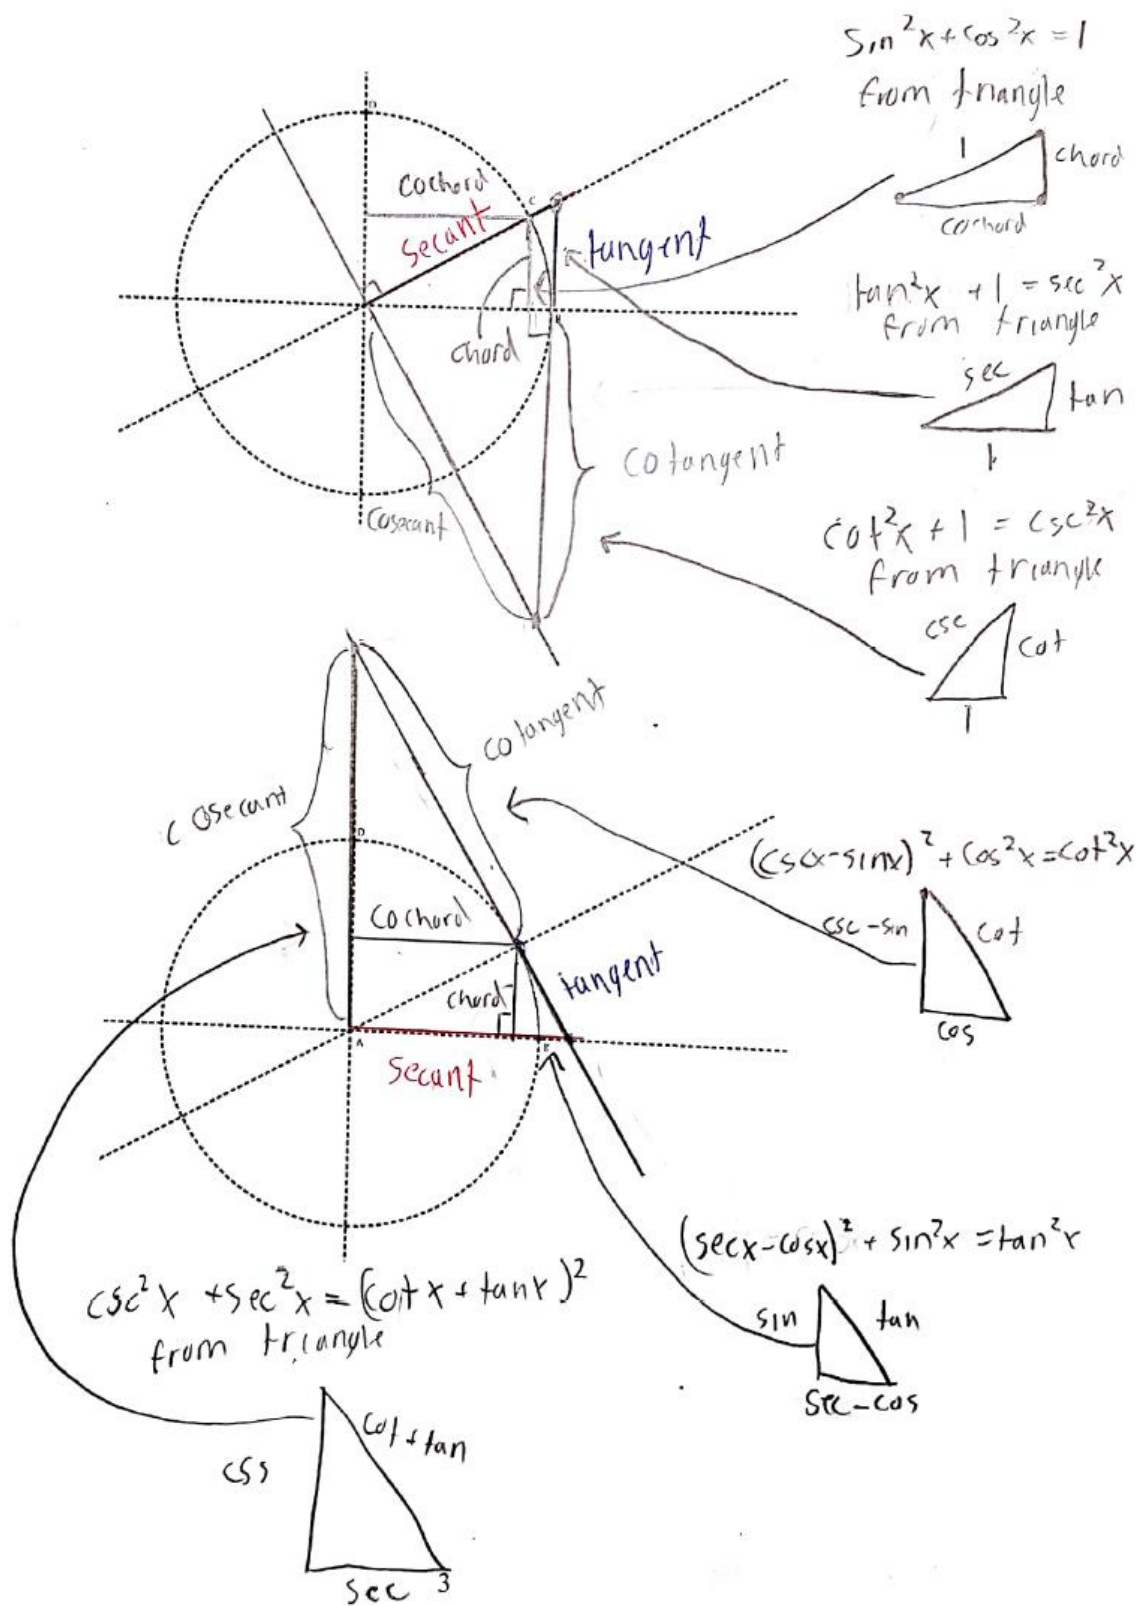 sin²x + cos²x = 1
from triangle
1
chord
cochord
D
cochord
C
secant
tangent
A
B
chord
tan²x + 1 = sec²x
from triangle
sec
tan
1
cotangent
cosecant
cot²x + 1 = csc²x
from triangle
csc
cot
1
cotangent
cosecant
D
(cscx-sinx)² + cos²x = cot²x
csc-sin
cot
cos
cochord
chord
tangent
A
B
secant
(secx-cosx)² + sin²x = tan²x
sin
tan
sec-cos
csc²x + sec²x = (cotx + tanx)²
from triangle
cot + tan
css
sec
3